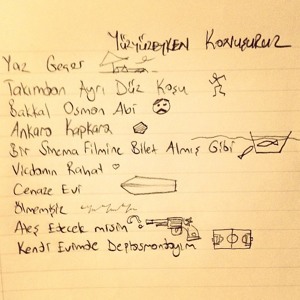 YÜZYÜZEYKEN KONUŞURUZ
Yaz Geçer
Takımdan Ayrı Düz Koşu
Bakkal Osman Abi
Ankara Kapkara
Bir Sinema Filmine Bilet Almış Gibi
Vicdanın Rahat
Cenaze Evi
Ölmemişiz
Ateş Edecek misin
Kendi Evimde Deplasmandayım